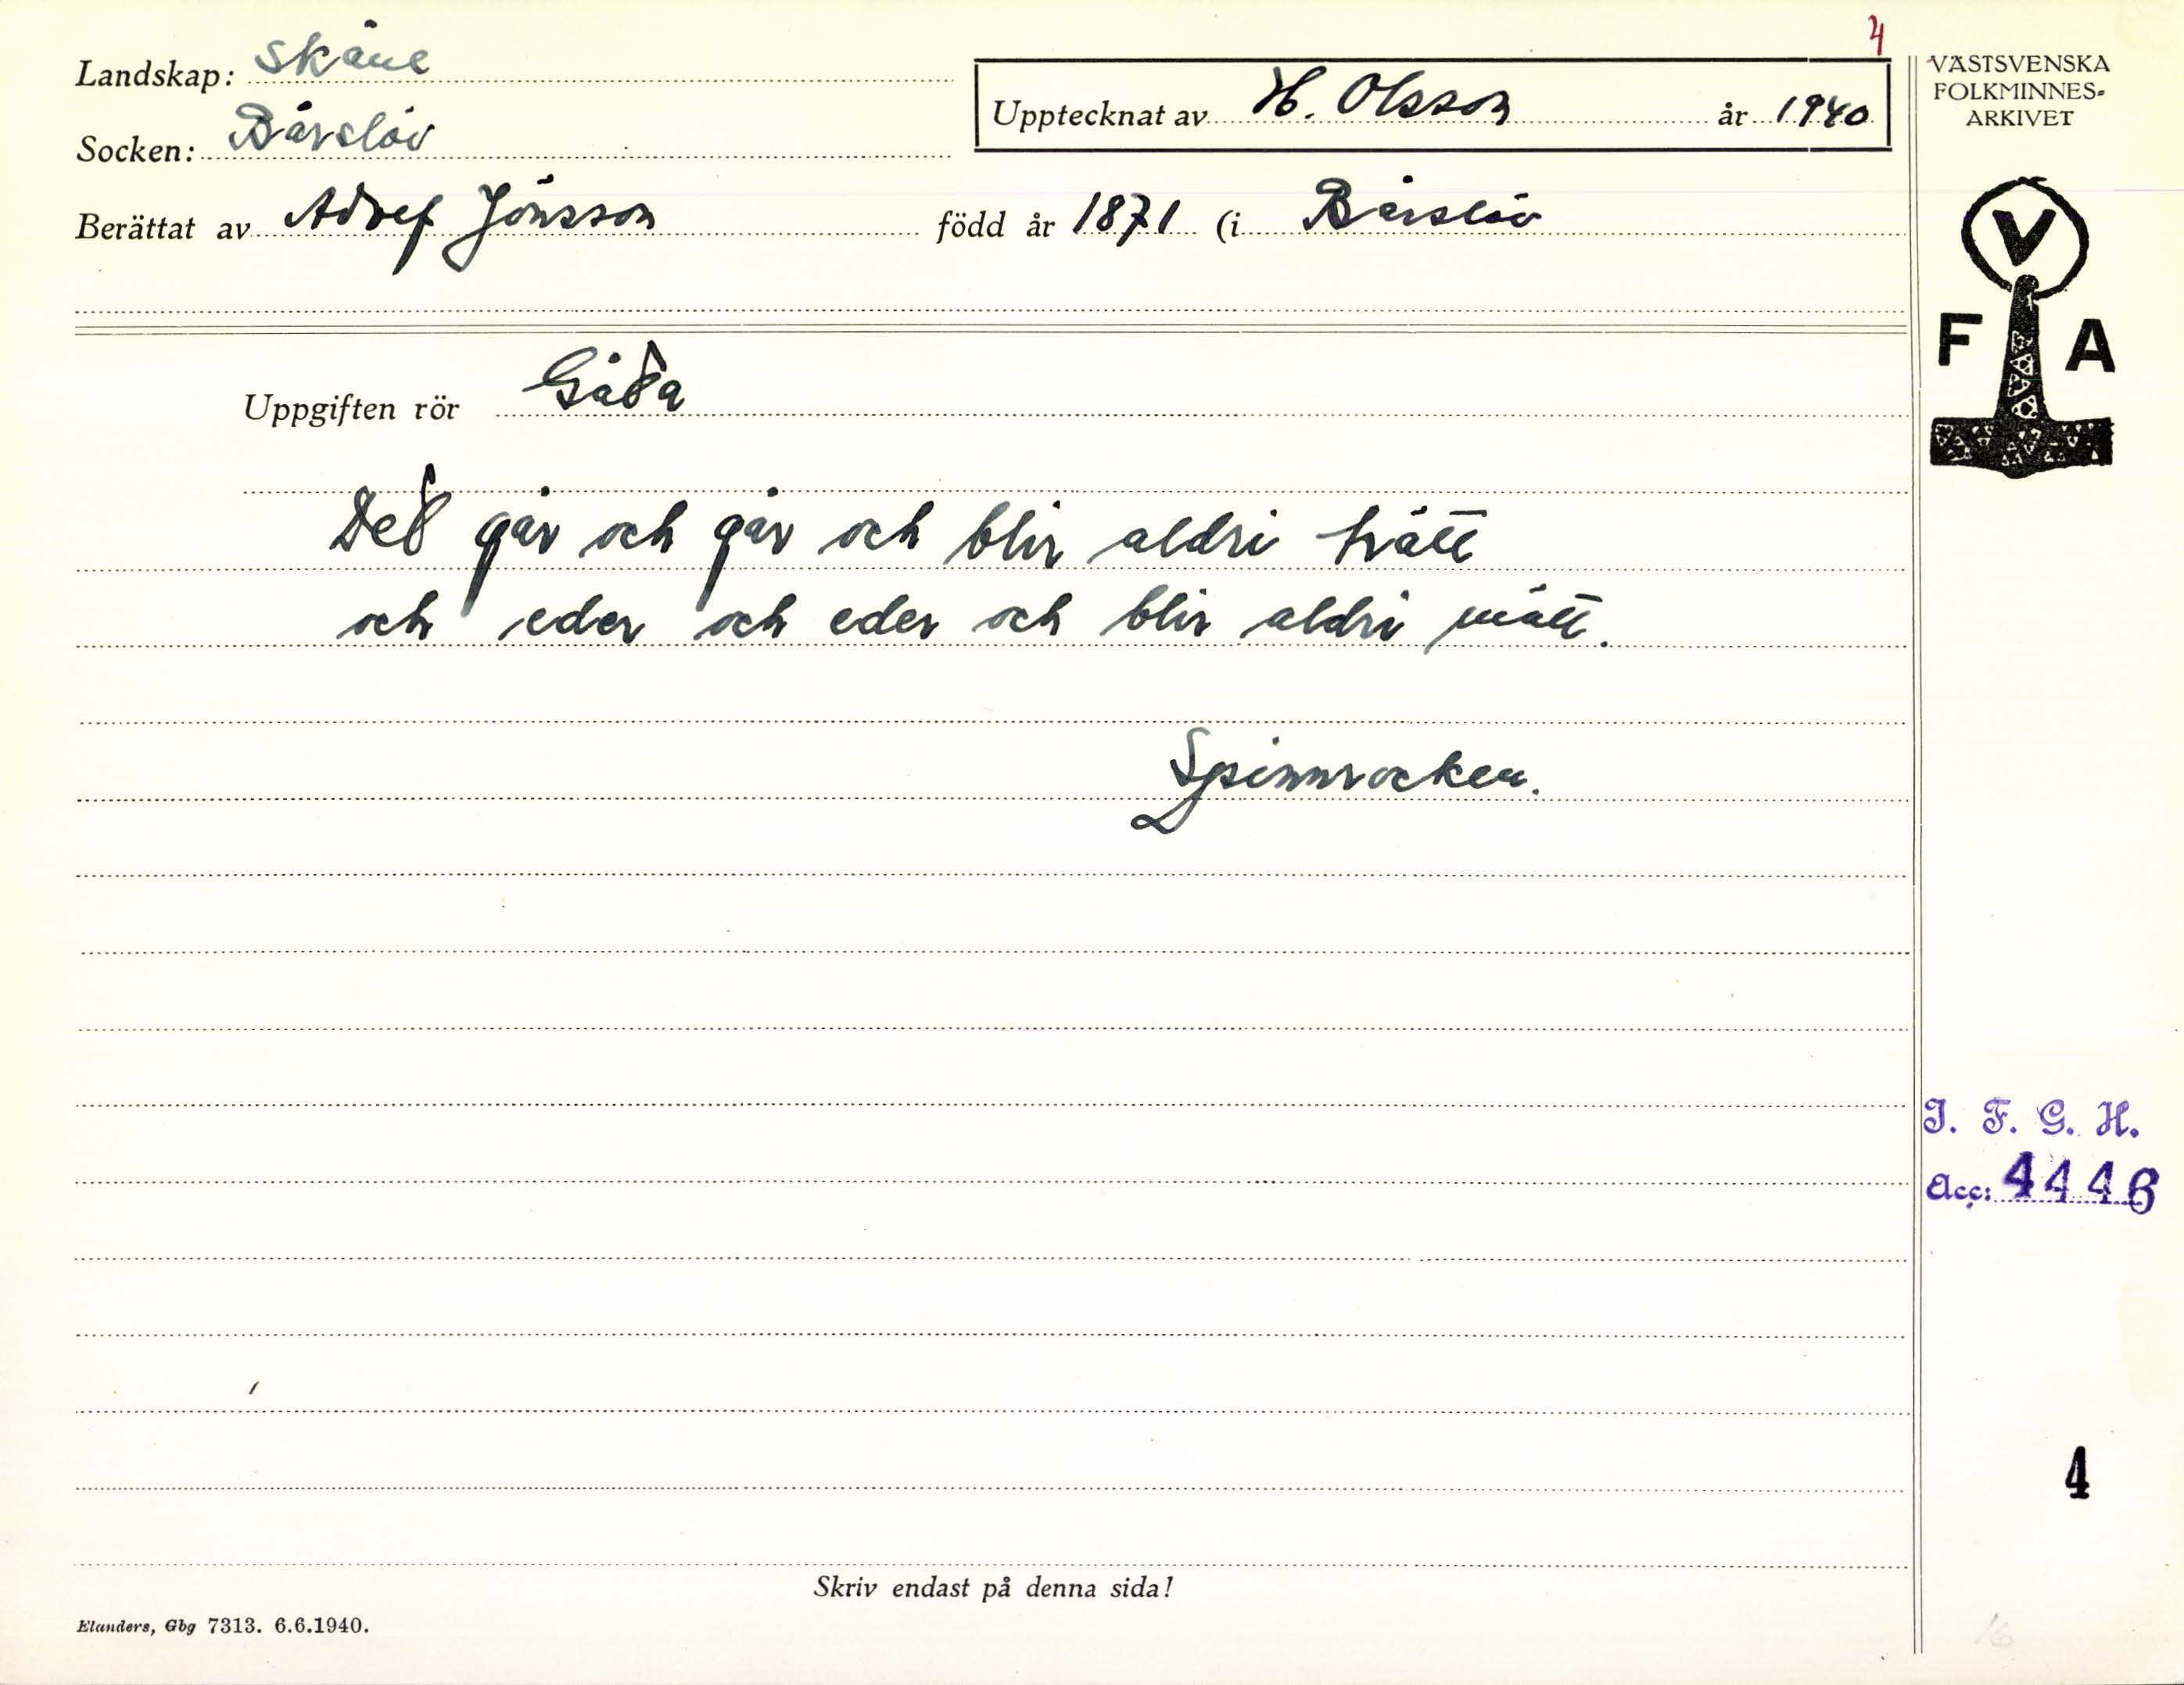 4
Landskap: Skåne
Socken: Bårslöv
Upptecknat av H. Olsson år 1940
Berättat av Adolf Jönsson född år 1871 (i Bårslöv
VÄSTSVENSKA
FOLKMINNES-
ARKIVET
V
F A
Uppgiften rör Gåda
Ded går och går och blir aldri trätt
och eder och eder och blir aldri mätt.
Spinnrocken.
I. F. G. H.
Acc: 4446
4
Skriv endast på denna sida!
Elanders, Gbg 7313. 6.6.1940.
16